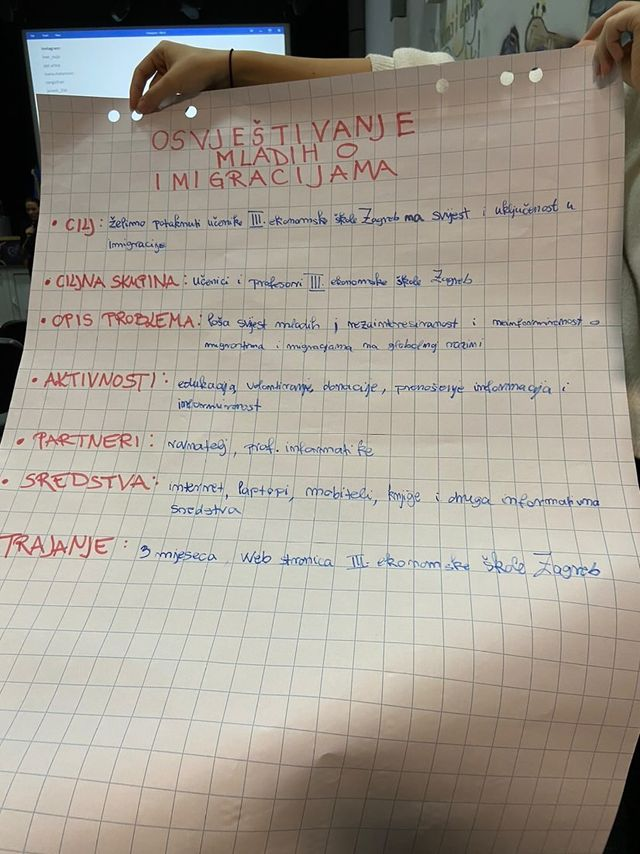 OSVJEŠTIVANJE
MLADIH O
IMIGRACIJAMA
• CILJ: želimo potaknuti učenike III. ekonomske škole Zagreb na svijest i uključenost u
immigracije
• CILJNA SKUPINA: učenici i profesori III ekonomske škole Zagreb
• OPIS PROBLEMA: loša svijest mladih, nezainteresiranost i neinformiranost o
migrantima i migracijama na globalnoj razini
• AKTIVNOSTI: edukacija, volontiranje, donacije, prenošenje informacija i
informiranost
• PARTNERI: ravnatelj, prof. informatike
• SREDSTVA: internet, laptopi, mobiteli, knjige i druga informativna
sredstva
TRAJANJE: 3 mjeseca, web stranica III. ekonomske škole Zagreb